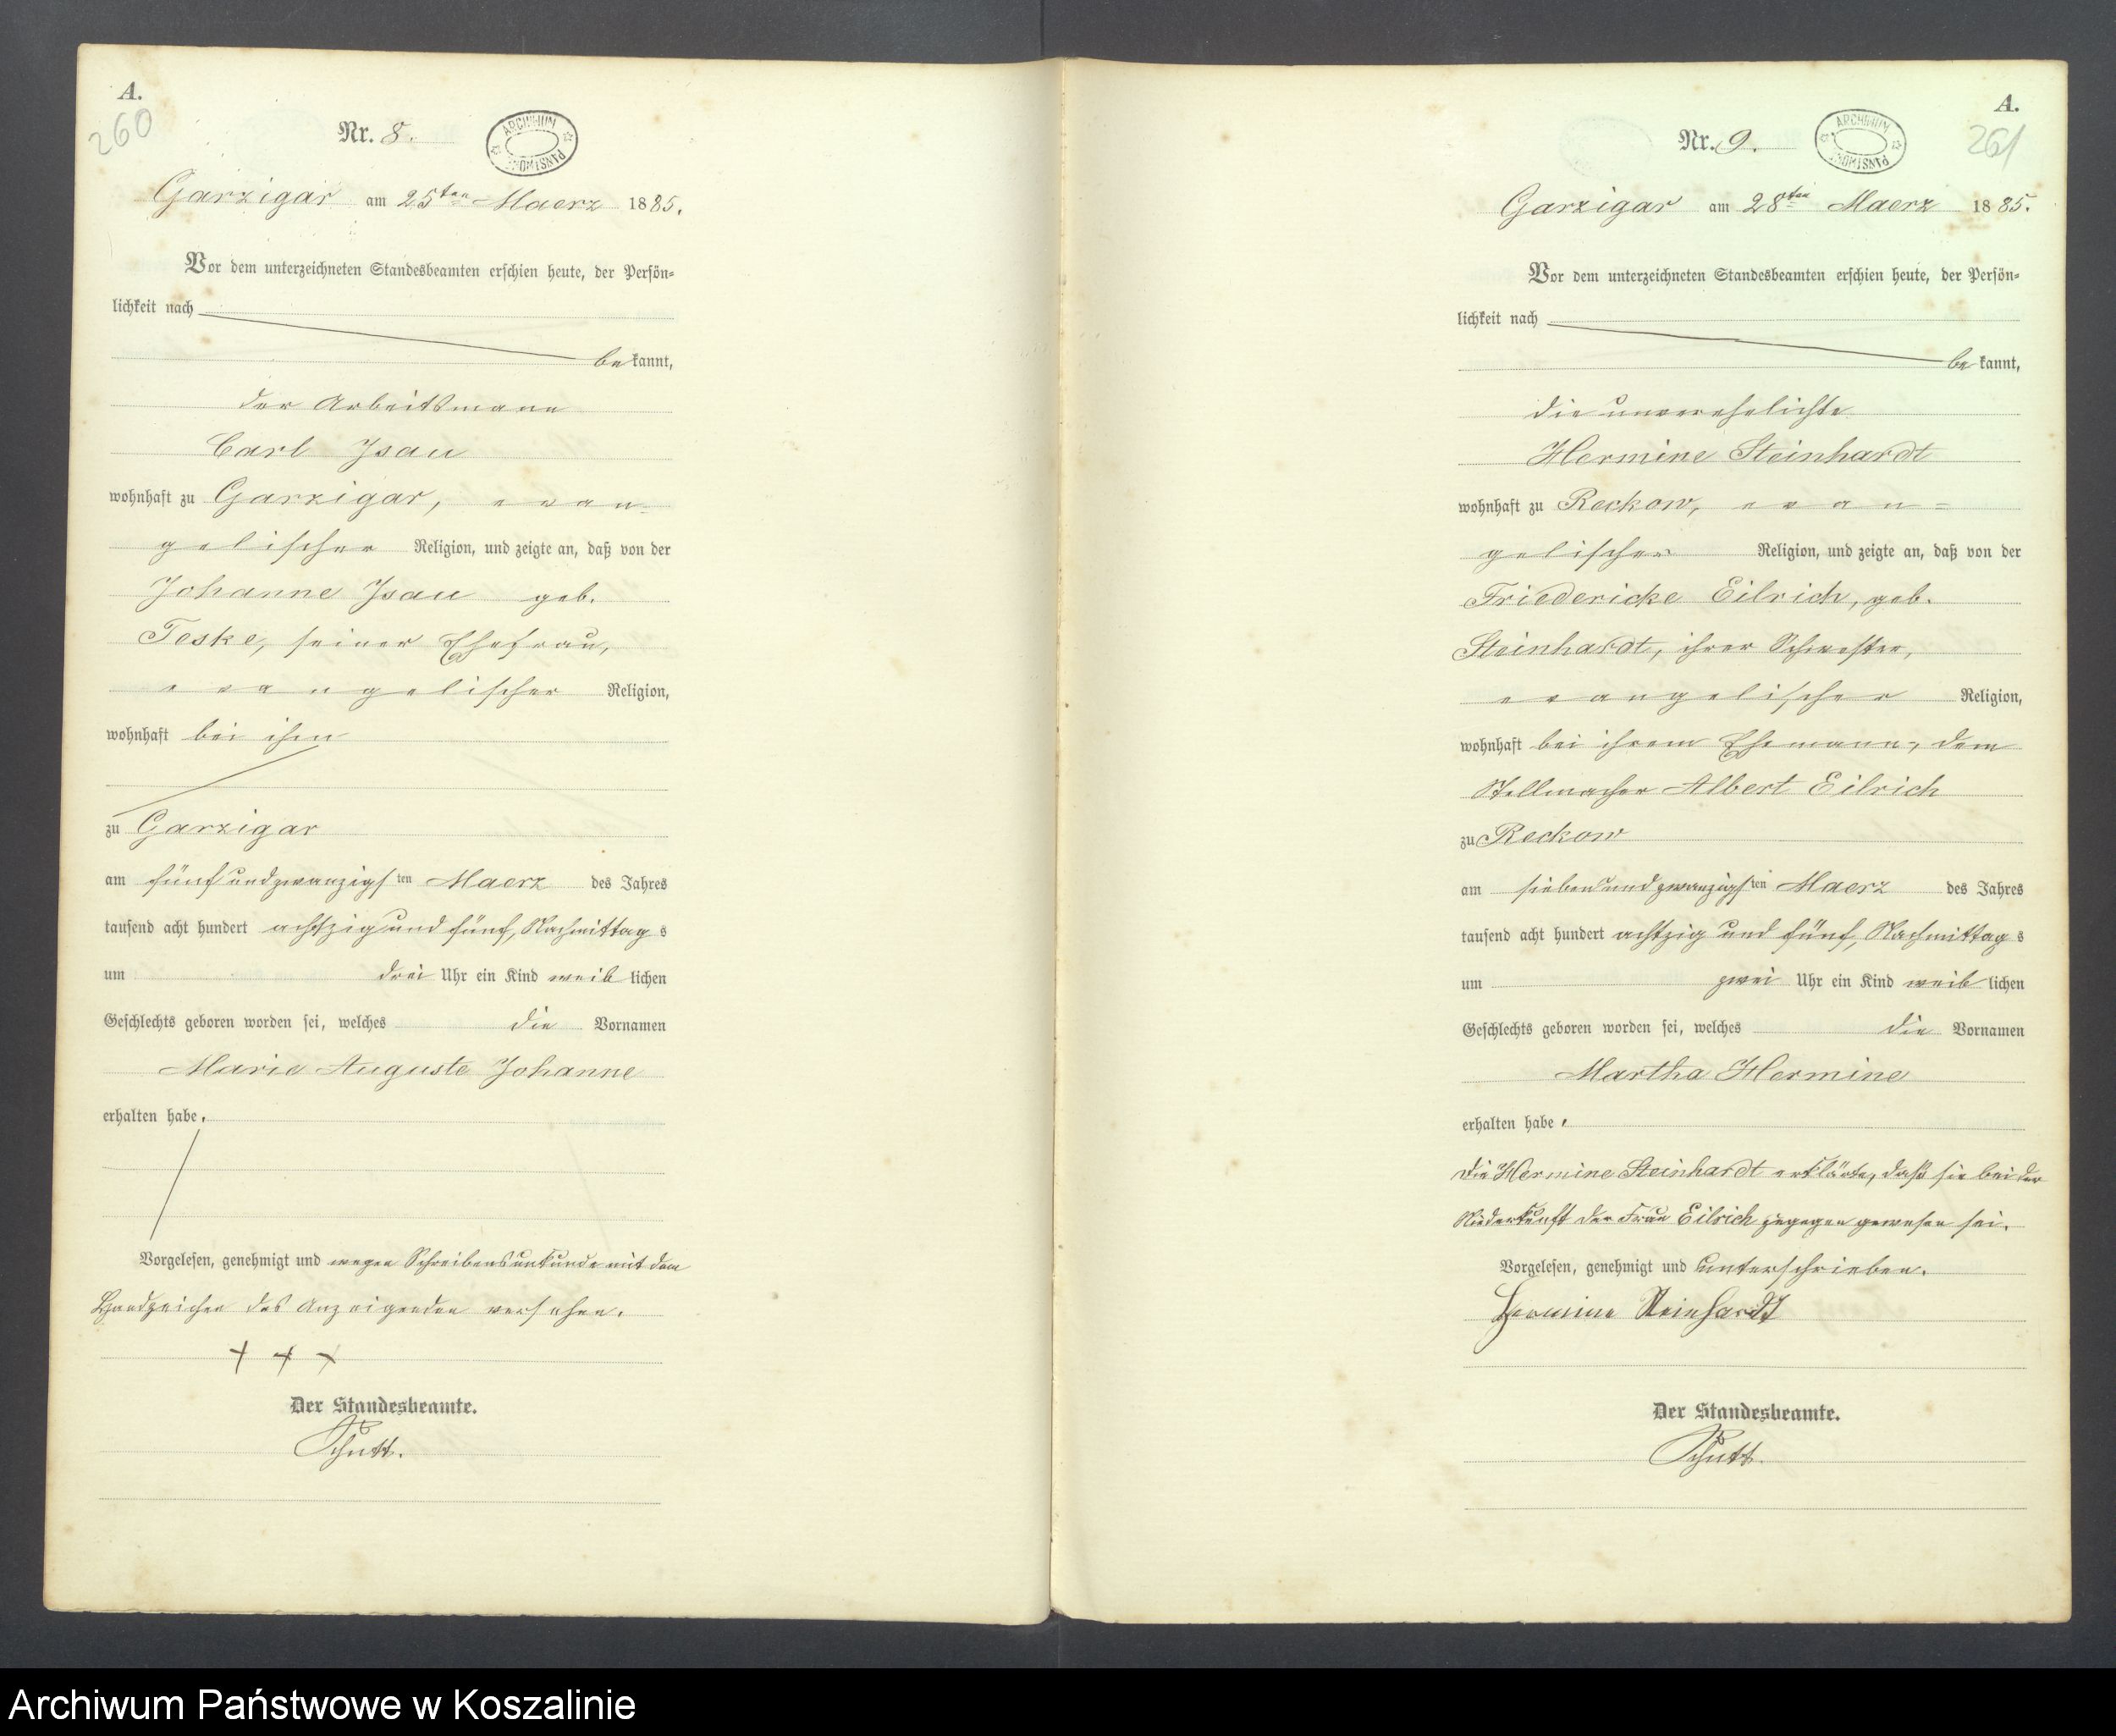 A.
260
Nr. 8.
ARCHIWUM PAŃSTWOWE
Garzigar am 25ten Maerz 1885.
Vor dem unterzeichneten Standesbeamten erschien heute, der Persön-
lichkeit nach
bekannt,
der Arbeitsmann
Carl Isau
wohnhaft zu Garzigar, evan-
gelischer Religion, und zeigte an, daß von der
Johanne Isau geb.
Teske, seiner Ehefrau,
evangelischer Religion,
wohnhaft bei ihm
zu Garzigar
am fünf und zwanzigsten Maerz des Jahres
tausend acht hundert achtzig und fünf, Nachmittags
um drei Uhr ein Kind weiblichen
Geschlechts geboren worden sei, welches die Vornamen
Marie Auguste Johanne
erhalten habe.
Vorgelesen, genehmigt und wegen Schreibensunkunde mit dem
Handzeichen des Anzeigenden versehen.
+ + +
Der Standesbeamte.
Schutt.
A.
261
Nr. 9.
ARCHIWUM PAŃSTWOWE
Garzigar am 28ten Maerz 1885.
Vor dem unterzeichneten Standesbeamten erschien heute, der Persön-
lichkeit nach
bekannt,
die unverehelichte
Hermine Steinhardt
wohnhaft zu Reckow, evan=
gelischer Religion, und zeigte an, daß von der
Friedericke Eilrich, geb.
Steinhardt, ihrer Schwester,
evangelischer Religion,
wohnhaft bei ihrem Ehemann, dem
Stellmacher Albert Eilrich
zu Reckow
am sieben und zwanzigsten Maerz des Jahres
tausend acht hundert achtzig und fünf, Nachmittags
um zwei Uhr ein Kind weiblichen
Geschlechts geboren worden sei, welches die Vornamen
Martha Hermine
erhalten habe.
Die Hermine Steinhardt erklärte, daß sie bei der
Niederkunft der Frau Eilrich zugegen gewesen sei.
Vorgelesen, genehmigt und unterschrieben.
Hermine Steinhardt
Der Standesbeamte.
Schutt.
Archiwum Państwowe w Koszalinie